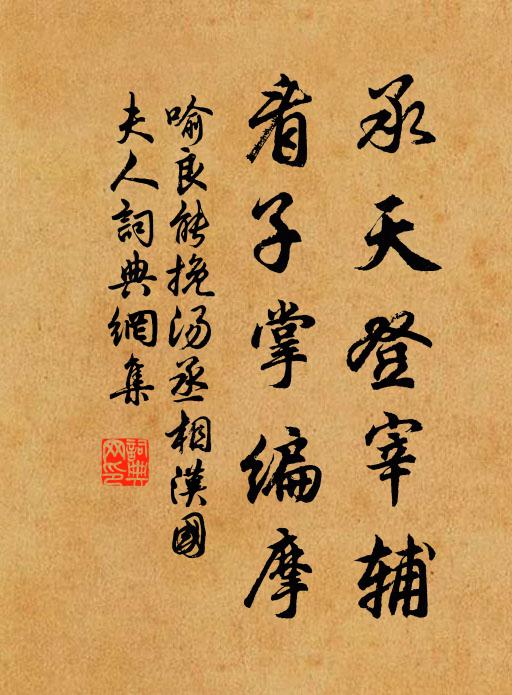 承天登宰辅
看子掌编摩
喻良能挽汤丞相漢國
夫人詞典網集
詞典
网印